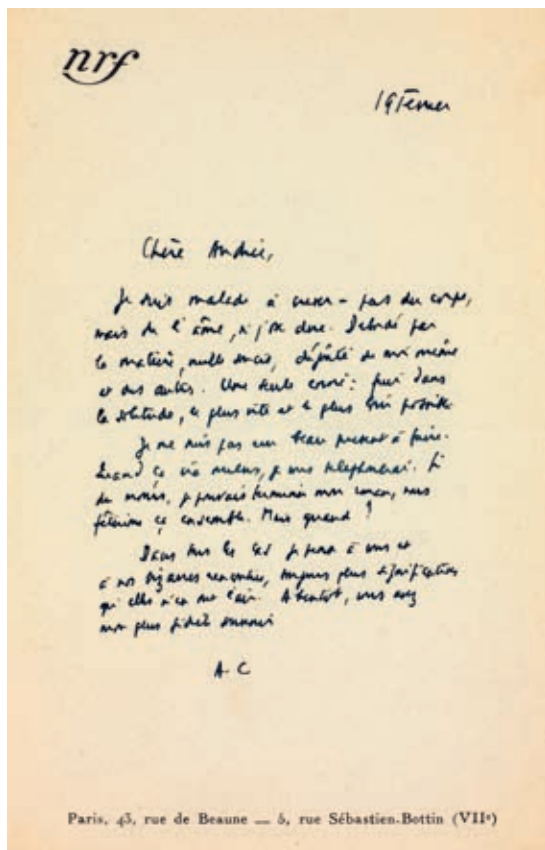 nrf
19 février
Chère Andrée,
Je suis malade à crever – pas du corps,
mais de l'âme, si j'ose dire. Débordé par
la matière, mille soucis, dégoûté de moi même
et des autres. Une seule envie : fuir dans
la solitude, le plus vite et le plus loin possible
Je ne suis pas un beau présent à faire.
Quand ça ira mieux, je vous téléphonerai. Si
du moins, je pouvais terminer mon roman, nous
fêterions ça ensemble. Mais quand ?
Dans tous les cas je pense à vous et
à nos bizarres rencontres, toujours plus significatives
qu'elles n'en ont l'air. A bientôt, vous avez
mon plus fidèle souvenir
A. C
Paris, 43, rue de Beaune — 5, rue Sébastien-Bottin (VIIe)